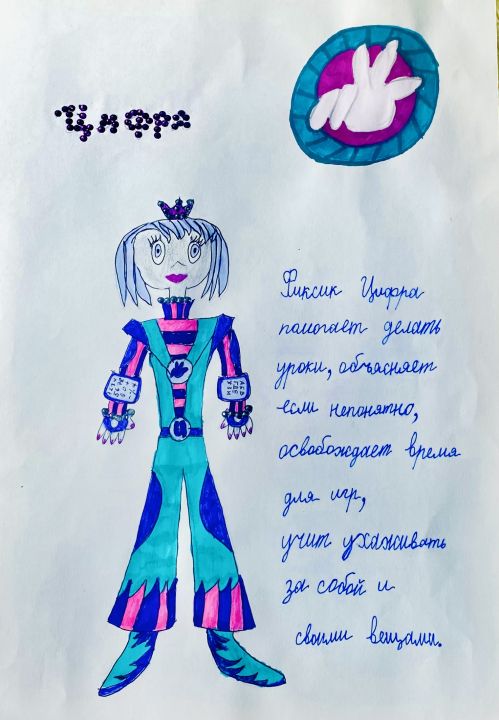 Цифра
Фиксик Цифра
помогает делать
уроки, объясняет
если непонятно,
освобождает время
для игр,
учит ухаживать
за собой и
своими вещами.